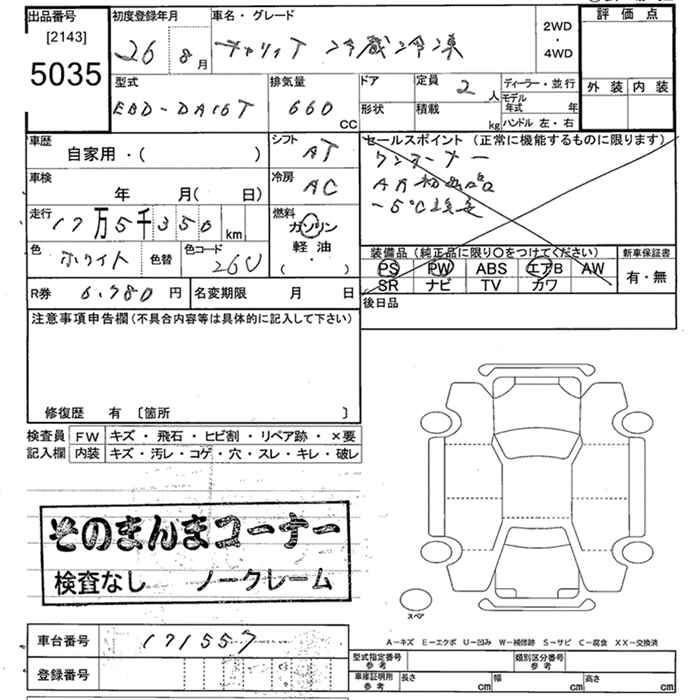 出品番号
[2143]
5035
初度登録年月
26 8月
車名・グレード
キャリイT 冷蔵冷凍
2WD
・
4WD
評価点
外装 内装
型式
EBD-DA16T
排気量
660 CC
ドア
形状
定員 2人
積載 kg
ディーラー・並行
モデル年式 年
ハンドル 左・右
車歴
自家用・( )
シフト
AT
セールスポイント(正常に機能するものに限ります)
ワンオーナー
AA初出品
-5℃設定
車検
年 月( 日)
冷房
AC
走行
17万5千350km
燃料
ガソリン
軽油
( ・ )
色
ホワイト
色替
色コード
26U
装備品(純正品に限り〇をつけてください)
PS PW ABS エアB AW
SR ナビ TV カワ
新車保証書
有・無
R券 6,780円
名変期限 月 日
後日品
注意事項申告欄(不具合内容等は具体的に記入して下さい)
修復歴 有 〔箇所 〕
検査員記入欄
FW キズ・飛石・ヒビ割・リペア跡・×要
内装 キズ・汚レ・コゲ・穴・スレ・キレ・破レ
そのまんまコーナー
検査なし ノークレーム
スペア
A-キズ E-エクボ U-凹み W-補修跡 S-サビ C-腐食 XX-交換済
車台番号 171557
登録番号
型式指定番号
参考
類別区分番号
参考
車庫証明所
参考
長さ cm 幅 cm 高さ cm